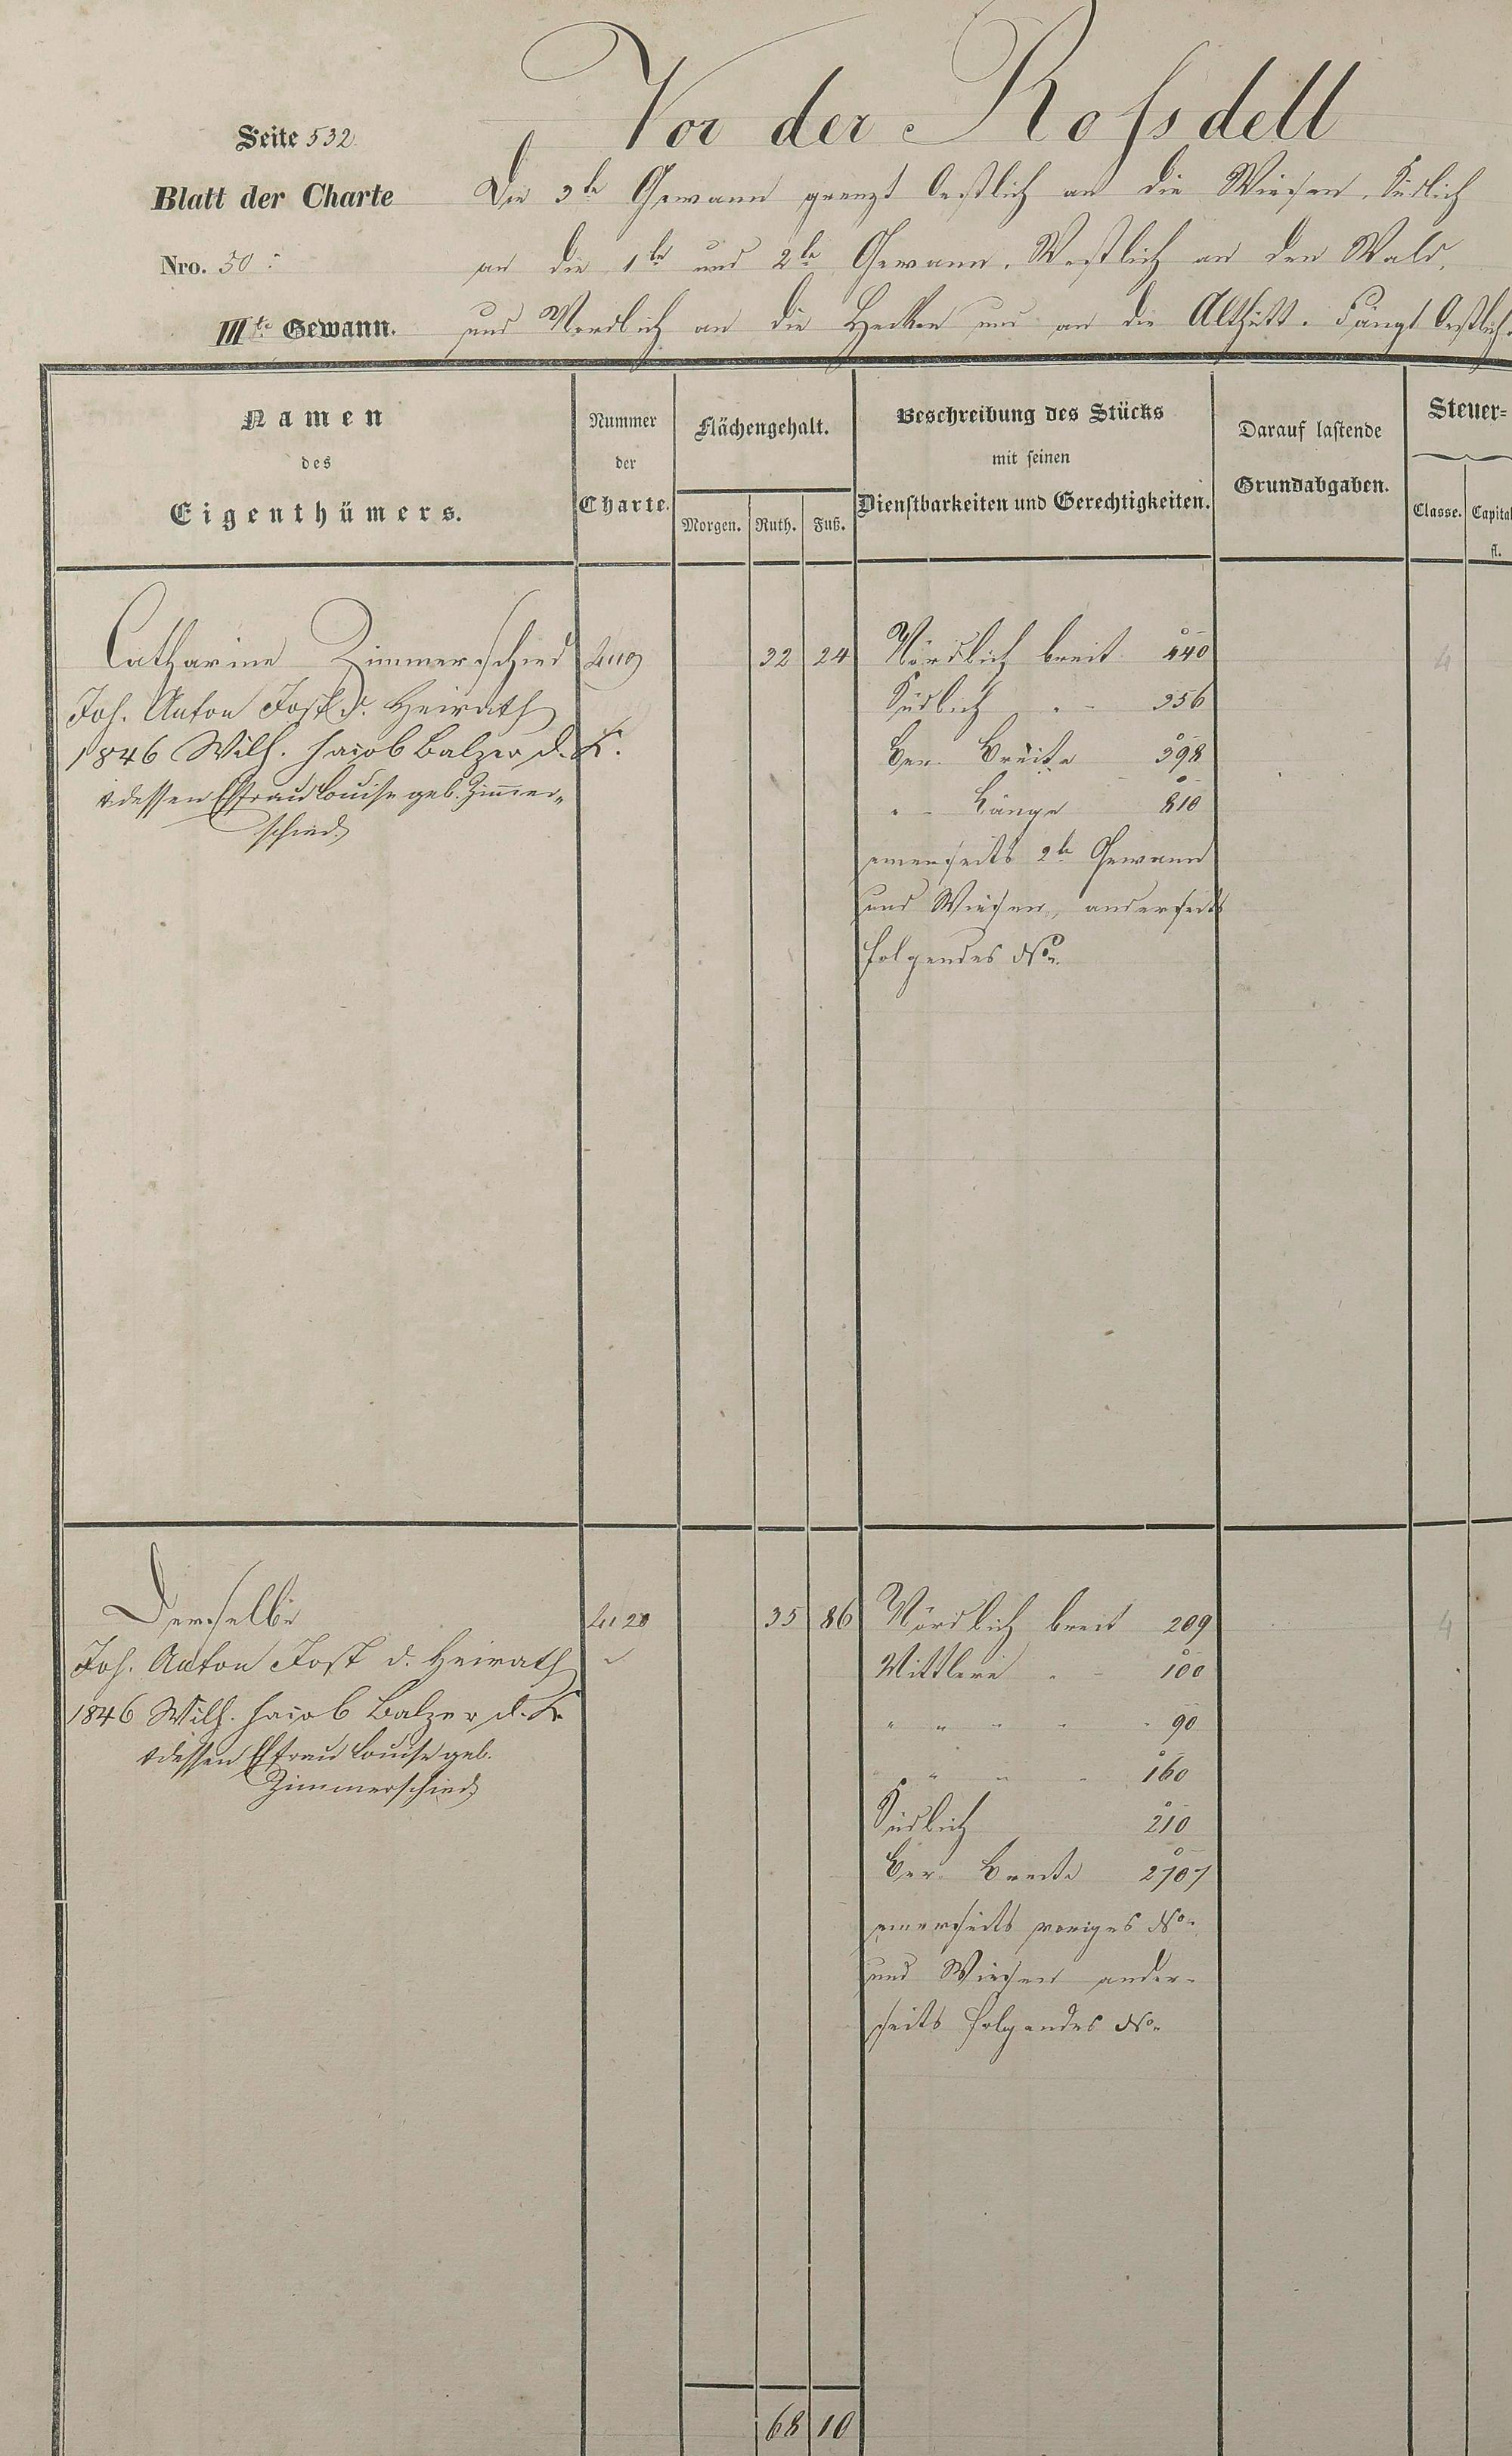 Vor der Roſsdell
Seite 532.
Blatt der Charte
Nro. 50:
IIIte Gewann.
Die 3te Gewann grenzt Oestlich an die Wiesen, Südlich
an die 1te und 2te Gewann, Westlich an den Wald,
und Nordlich an die Hecken und an die Althütt. Fängt Oestlich
Namen
des
Eigenthümers.
Nummer
der
Charte.
Flächengehalt.
Morgen. Ruth. Fuß.
Beschreibung des Stücks
mit seinen
Dienstbarkeiten und Gerechtigkeiten.
Darauf lastende
Grundabgaben.
Steuer=
Classe. Capital
fl.
Catharine Zimmerschied 4119 32 24 Nördlich breit 440 4
Joh. Anton Jost d. Heirath Südlich " 356
1846 Wilh. Jacob Balzer d. K. Ber. Breite 398
& dessen Ehfrau Louise geb. Zimmer= " Länge 810
schied
einerseits 2te Gewann
und Wiesen, anderseits
folgendes No.
Derselbe 4120 35 86 Nördlich breit 209 4
Joh. Anton Jost d. Heirath Mittlere " 100
1846 Wilh. Jacob Balzer d. K. " " " " 90
& dessen Ehfrau Louise geb. " " " 160
Zimmerschied
Südlich 210
Ber. Breite 2707
einerseits voriges No.
und Wiesen ander-
seits folgendes No.
68 10